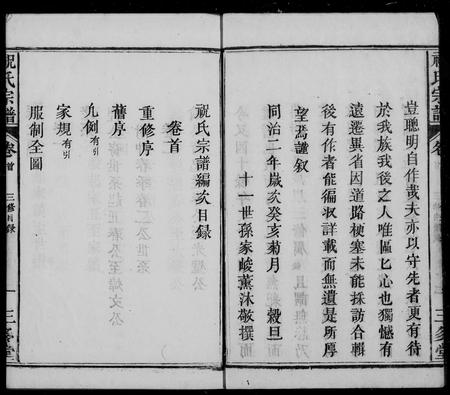 祝氏宗譜
卷
三多堂
豈聰明自作哉夫亦以守先者更有待
於我族我後之人唯區匕心也獨憾有
遠遷異省因道路梗塞未能採訪合輯
後有作者能徧汊詳載而無遺是所厚
望焉謹叙
同治二年歲次癸亥菊月 穀旦
十一世孫家峻薰沐敬撰而
祝氏宗譜編次目錄
卷首
重修序
舊序
凡例有引
家規有引
服制全圖
祝氏宗譜
卷首
三修目錄
一
三多堂